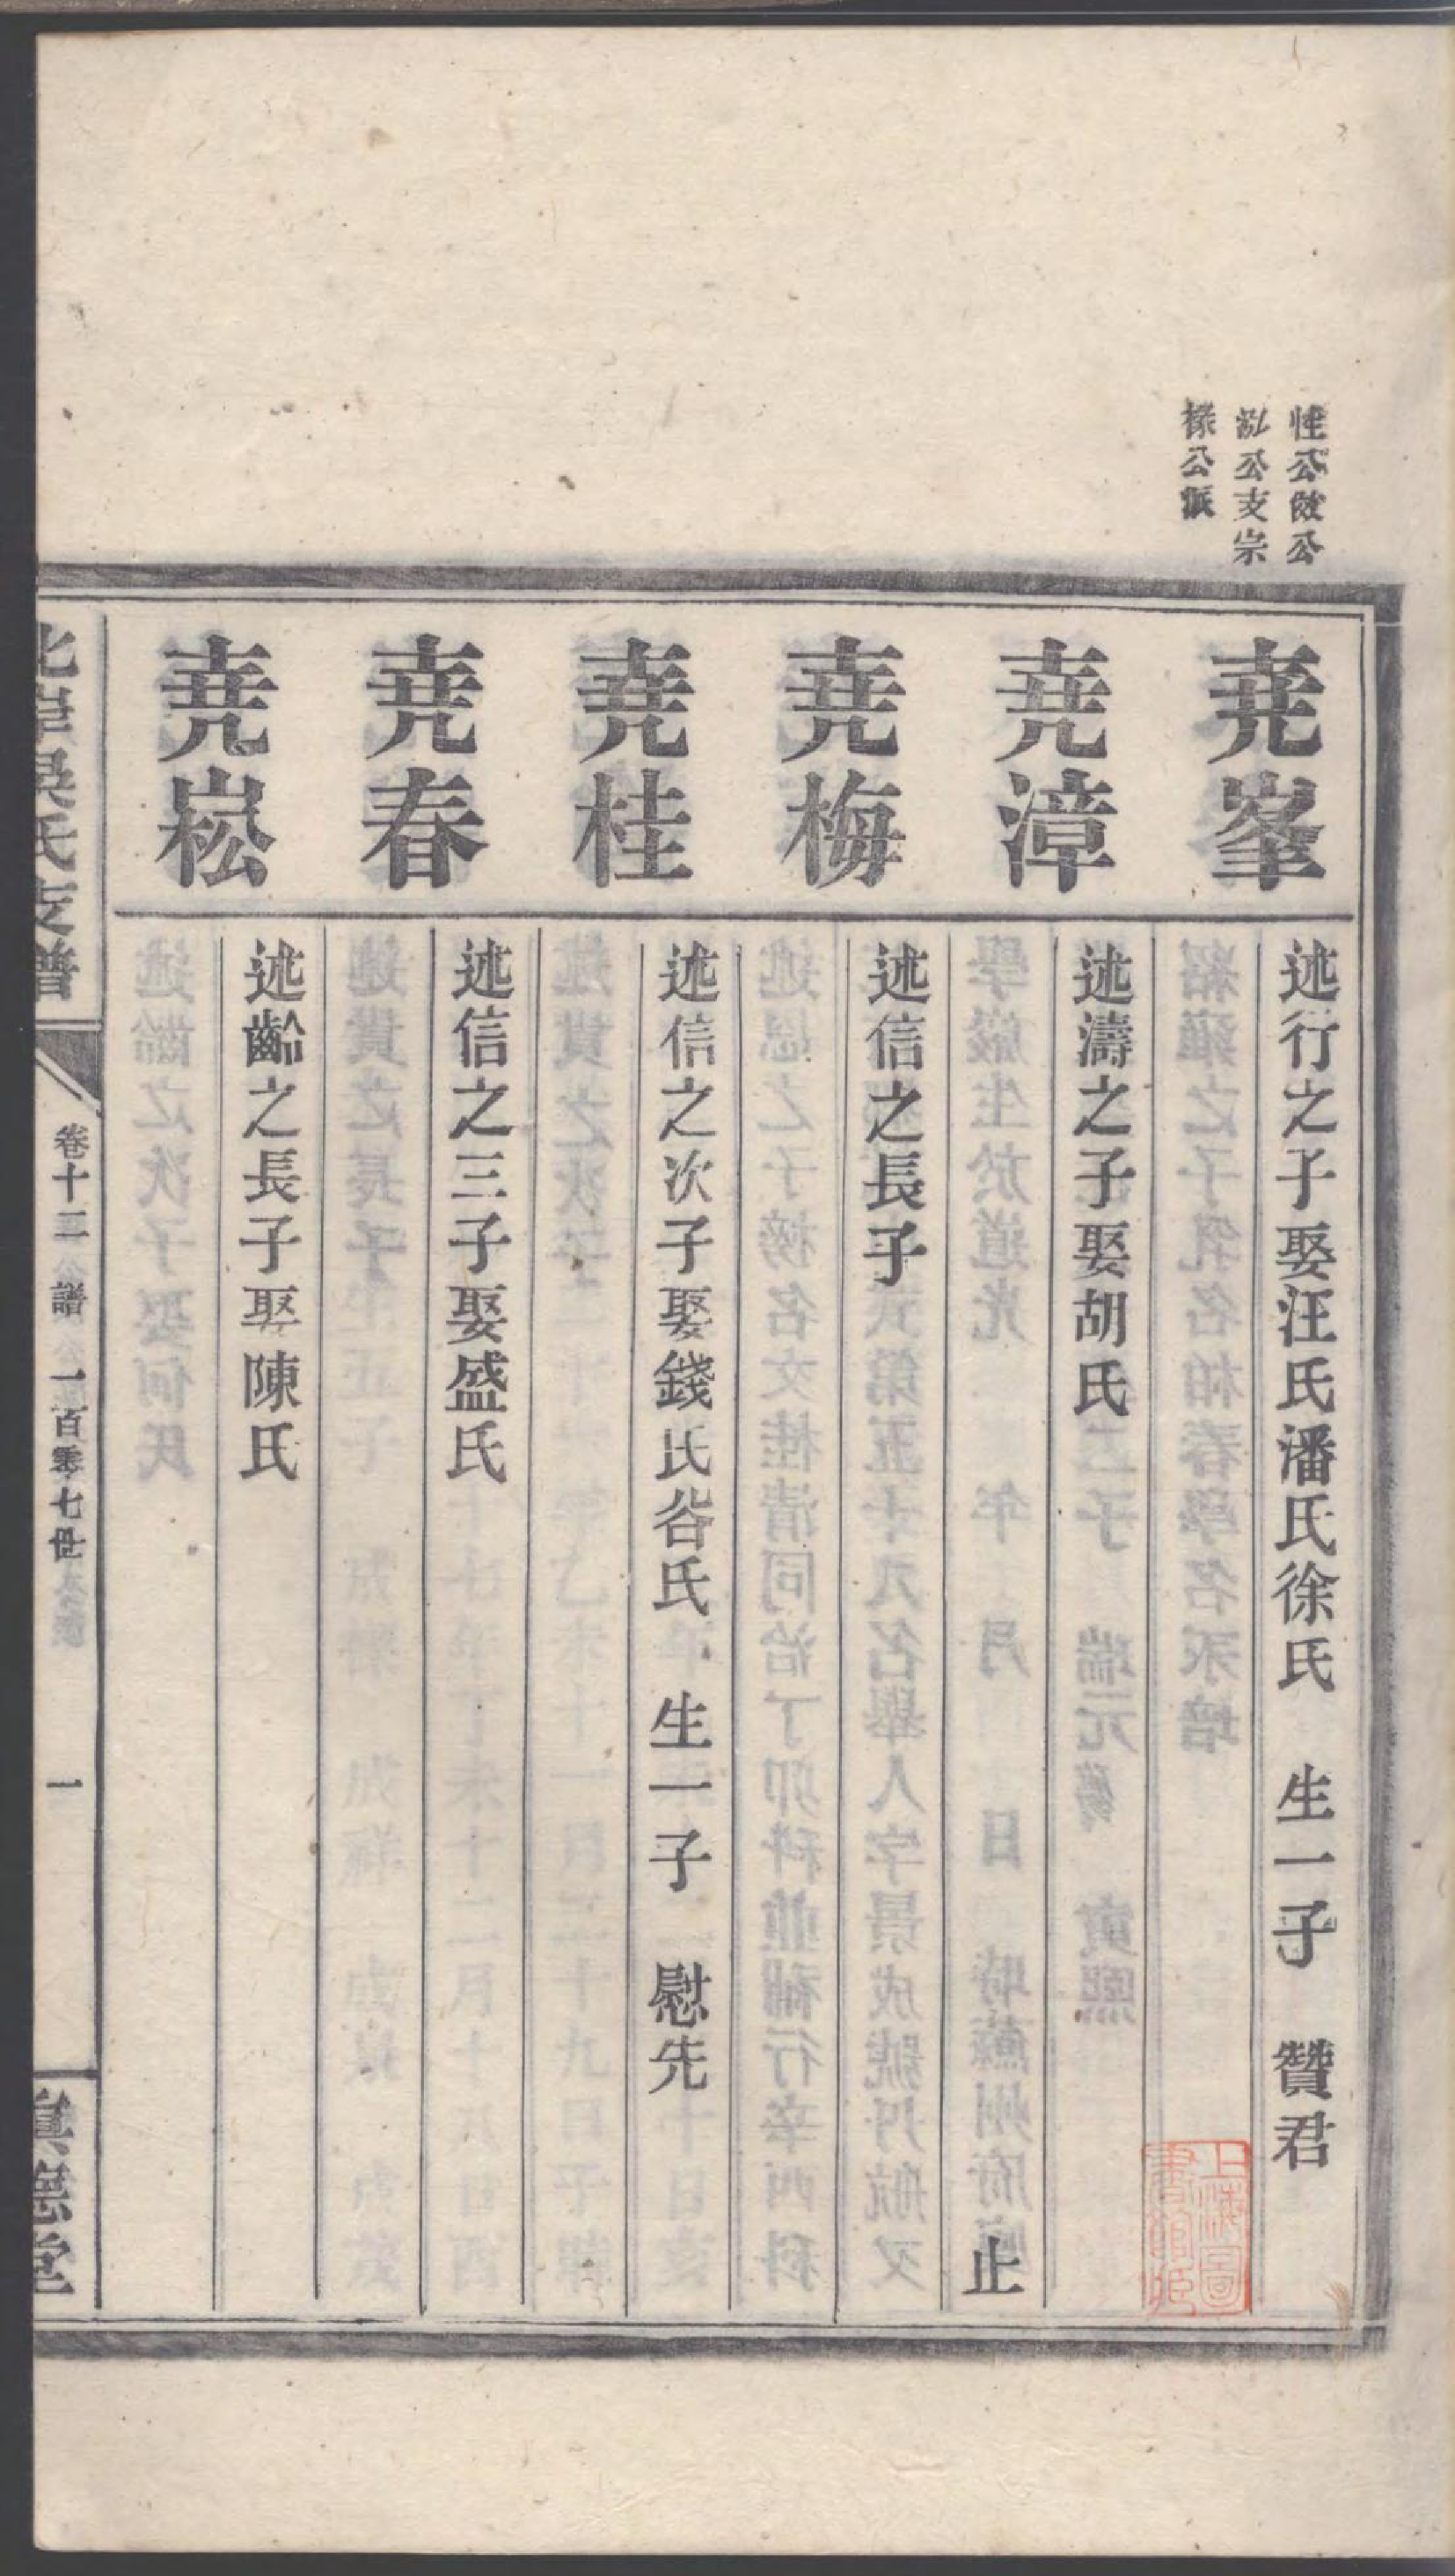 性公啟公
泓公支宗
祿公派
堯峯
述行之子娶汪氏潘氏徐氏 生一子 贊君
堯漳
述濤之子娶胡氏
止
堯梅
述信之長子
堯桂
述信之次子娶錢氏谷氏 生一子 慰先
堯春
述信之三子娶盛氏
堯崧
述齡之長子娶陳氏
北岸吳氏支譜
卷十二 譜 一百零七世
一
眞德堂
上海圖
書館